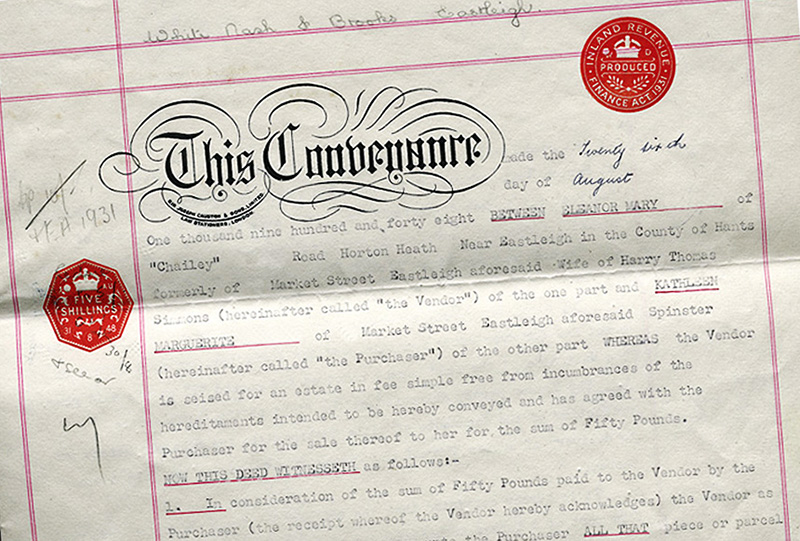 White Nash & Brooks Eastleigh.
INLAND REVENUE
PRODUCED
FINANCE ACT 1931
This Conveyance
SIR JOSEPH CAUSTON & SONS, LIMITED.
LAW STATIONERS, LONDON.
made the Twenty sixth
day of August
1931
One thousand nine hundred and forty eight BETWEEN ELEANOR MARY of
"Chailey" Road Horton Heath Near Eastleigh in the County of Hants
formerly of Market Street Eastleigh aforesaid Wife of Harry Thomas
Simmons (hereinafter called "the Vendor") of the one part and KATHLEEN
MARGUERITE of Market Street Eastleigh aforesaid Spinster
(hereinafter called "the Purchaser") of the other part WHEREAS the Vendor
is seised for an estate in fee simple free from incumbrances of the
hereditaments intended to be hereby conveyed and has agreed with the
Purchaser for the sale thereof to her for the sum of Fifty Pounds.
FIVE
SHILLINGS
31 8 48
NOW THIS DEED WITNESSETH as follows:-
1. In consideration of the sum of Fifty Pounds paid to the Vendor by the
Purchaser (the receipt whereof the Vendor hereby acknowledges) the Vendor as
the Purchaser ALL THAT piece or parcel